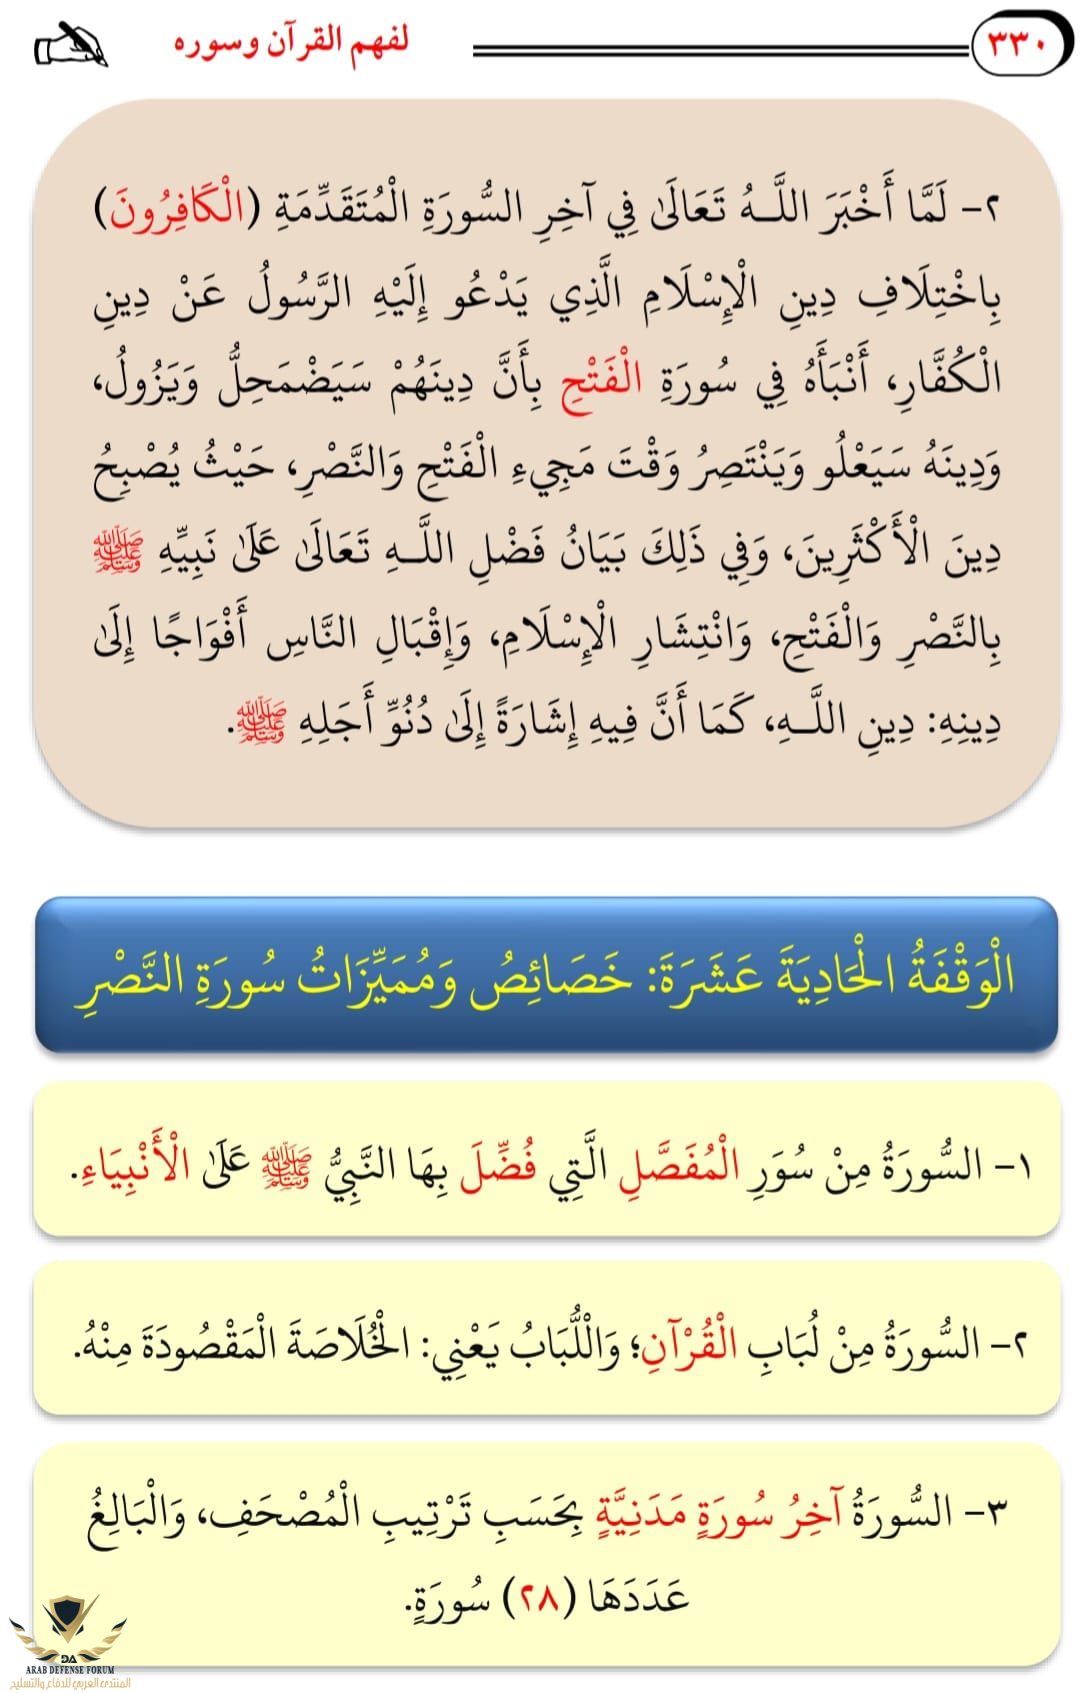 ٣٣٠
لفهم القرآن وسوره
٢- لَمَّا أَخْبَرَ اللَّـهُ تَعَالَىٰ فِي آخِرِ السُّورَةِ الْمُتَقَدِّمَةِ (الْكَافِرُونَ)
بِاخْتِلَافِ دِينِ الْإِسْلَامِ الَّذِي يَدْعُو إِلَيْهِ الرَّسُولُ عَنْ دِينِ
الْكُفَّارِ، أَنْبَأَهُ فِي سُورَةِ الْفَتْحِ بِأَنَّ دِينَهُمْ سَيَضْمَحِلُّ وَيَزُولُ،
وَدِينَهُ سَيَعْلُو وَيَنْتَصِرُ وَقْتَ مَجِيءِ الْفَتْحِ وَالنَّصْرِ، حَيْثُ يُصْبِحُ
دِينَ الْأَكْثَرِينَ، وَفِي ذَلِكَ بَيَانُ فَضْلِ اللَّـهِ تَعَالَىٰ عَلَىٰ نَبِيِّهِ ﷺ
بِالنَّصْرِ وَالْفَتْحِ، وَانْتِشَارِ الْإِسْلَامِ، وَإِقْبَالِ النَّاسِ أَفْوَاجًا إِلَىٰ
دِينِهِ: دِينِ اللَّـهِ، كَمَا أَنَّ فِيهِ إِشَارَةً إِلَىٰ دُنُوِّ أَجَلِهِ ﷺ.
الْوَقْفَةُ الْحَادِيَةَ عَشَرَةَ: خَصَائِصُ وَمُمَيِّزَاتُ سُورَةِ النَّصْرِ
١- السُّورَةُ مِنْ سُوَرِ الْمُفَصَّلِ الَّتِي فُضِّلَ بِهَا النَّبِيُّ ﷺ عَلَىٰ الْأَنْبِيَاءِ.
٢- السُّورَةُ مِنْ لُبَابِ الْقُرْآنِ؛ وَاللُّبَابُ يَعْنِي: الْخُلَاصَةَ الْمَقْصُودَةَ مِنْهُ.
٣- السُّورَةُ آخِرُ سُورَةٍ مَدَنِيَّةٍ بِحَسَبِ تَرْتِيبِ الْمُصْحَفِ، وَالْبَالِغُ
عَدَدَهَا (٢٨) سُورَةٍ.
DA
ARAB DEFENSE FORUM
المنتدى العربي للدفاع والتسليح